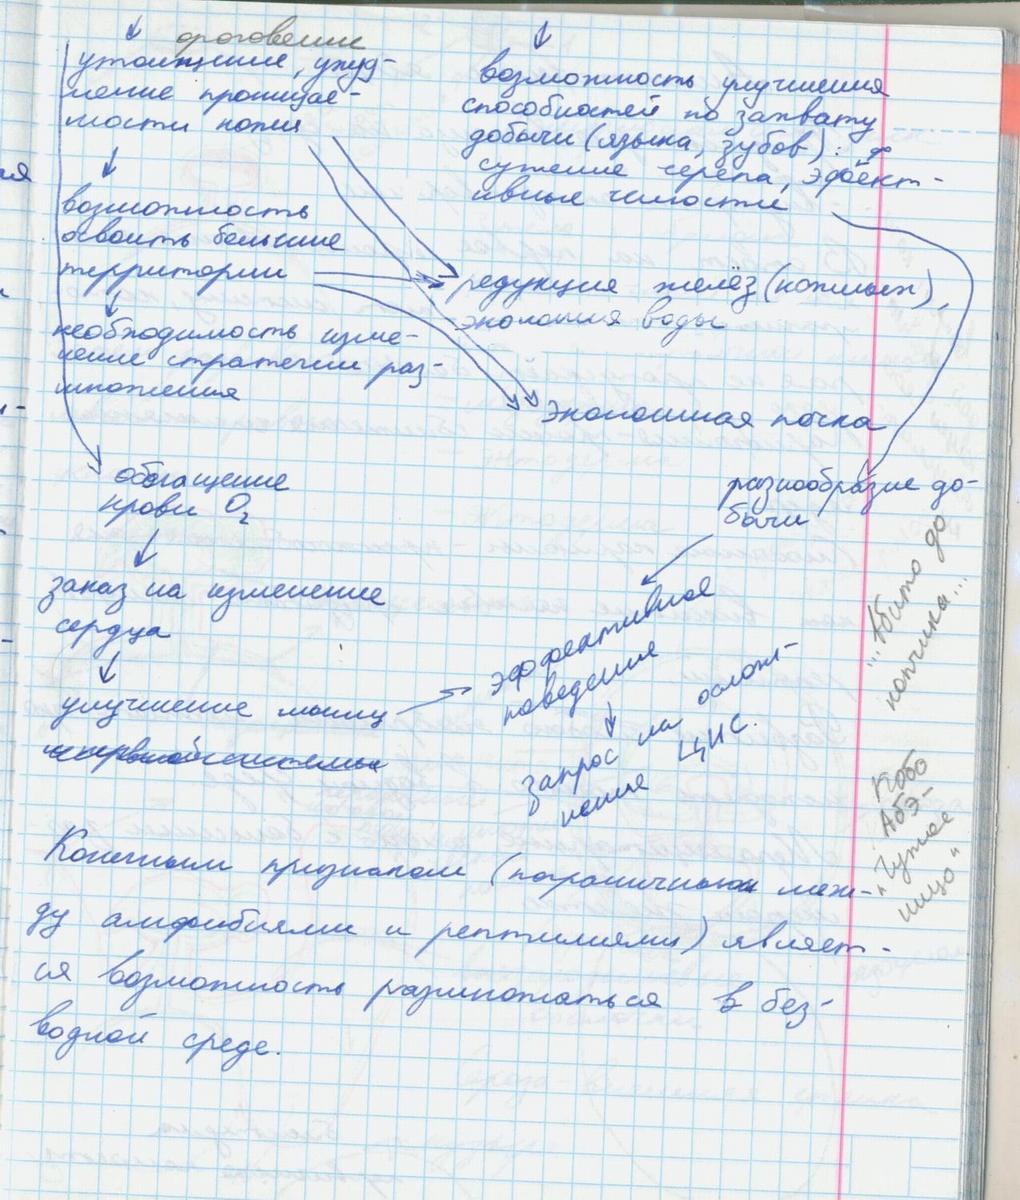 ороговение
утолщение, ухуд-
шение проницае-
мости кожи
возможность
освоить большие
территории
необходимость изме-
нение стратегии раз-
множения
обогащение
крови O₂
заказ на изменение
сердца
улучшение мышц
и нервной системы
возможность улучшения
способностей по захвату
добычи (языка, зубов):
сужение черепа, эффект-
ивные челюсти
редукция желёз (кожных),
экономия воды
экономная почка
разнообразие до-
бычи
эффективное
поведение
запрос на ослож-
нение ЦНС.
"...Абито до
кончика..."
Кобо
Абэ-
"Чужое
лицо"
Конечным признаком (пограничным меж-
ду амфибиями и рептилиями) являет-
ся возможность размножаться в без-
водной среде.